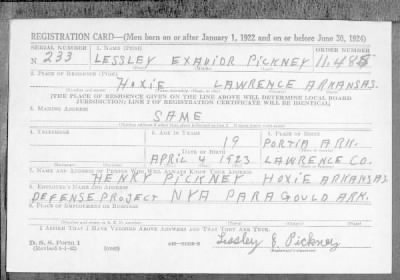 REGISTRATION CARD—(Men born on or after January 1, 1922 and on or before June 30, 1924)
SERIAL NUMBER 1. NAME (Print) ORDER NUMBER
N 233 LESSLEY EXAVIOR PICKNEY 11,485
2. PLACE OF RESIDENCE (Print)
HOXIE LAWRENCE ARKANSAS.
[THE PLACE OF RESIDENCE GIVEN ON THE LINE ABOVE WILL DETERMINE LOCAL BOARD
JURISDICTION; LINE 2 OF REGISTRATION CERTIFICATE WILL BE IDENTICAL]
3. MAILING ADDRESS
SAME
4. TELEPHONE 5. AGE IN YEARS 6. PLACE OF BIRTH
19 PORTIA ARK.
DATE OF BIRTH
APRIL 4 1923 LAWRENCE CO.
7. NAME AND ADDRESS OF PERSON WHO WILL ALWAYS KNOW YOUR ADDRESS
HENRY PICKNEY HOXIE ARKANSAS
8. EMPLOYER'S NAME AND ADDRESS
DEFENSE PROJECT NYA PARAGOULD ARK.
9. PLACE OF EMPLOYMENT OR BUSINESS
I AFFIRM THAT I HAVE VERIFIED ABOVE ANSWERS AND THAT THEY ARE TRUE.
D. S. S. Form 1
Lessley E Pickney